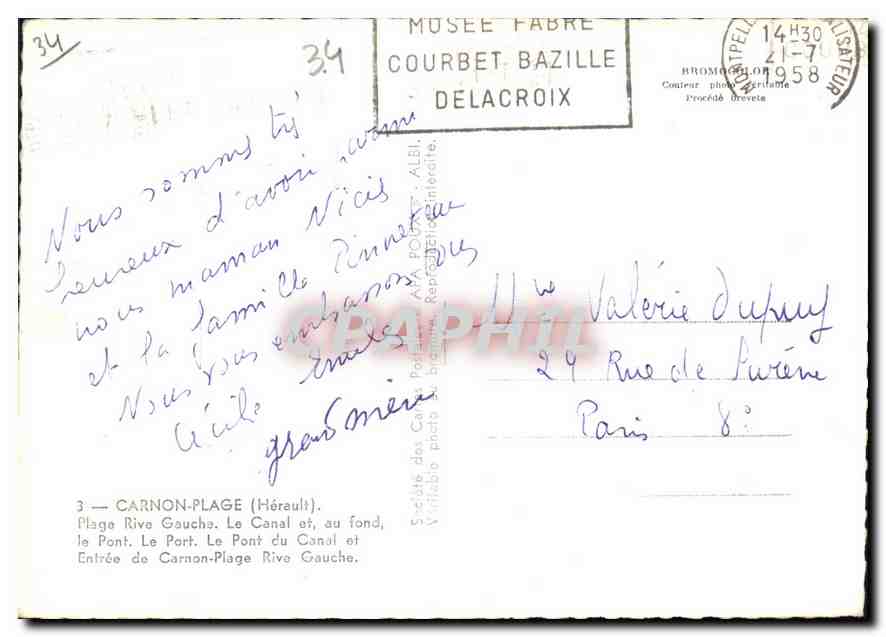 34
34
MUSÉE FABRE
COURBET BAZILLE
DELACROIX
14H30
21-7
1958
BROMOCOLOR
Couleur photo véritable
Procédé breveté
Nous sommes très
heureux d'avoir parmi
nous maman
et la famille
Nous vous embrassons
Cécile
grand mère
Mme Valérie Dupuy
29 Rue de Surène
Paris 8e
3 — CARNON-PLAGE (Hérault).
Plage Rive Gauche. Le Canal et, au fond,
le Pont. Le Port. Le Pont du Canal et
Entrée de Carnon-Plage Rive Gauche.
Société des Cartes Postales APA POUX - ALBI.
Véritable photo au bromure. Reproduction interdite.
CPAPHIL